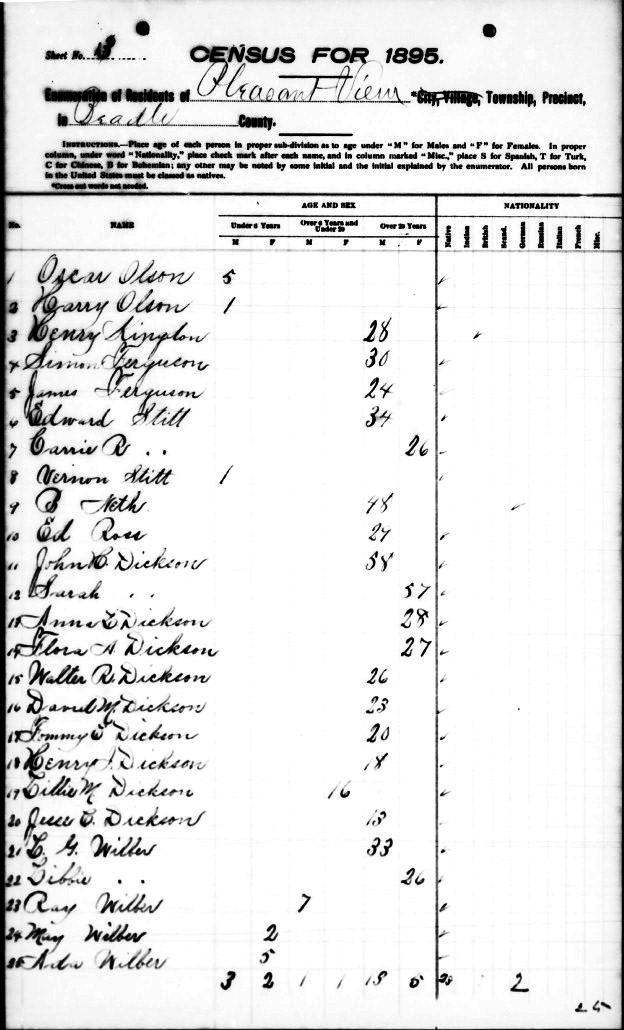 Sheet No. 13
CENSUS FOR 1895.
Enumeration of Residents of Pleasant View *City, Village, Township, Precinct,
in Beadle County.
INSTRUCTIONS.—Place age of each person in proper sub-division as to age under "M" for Males and "F" for Females. In proper
column, under word "Nationality," place check mark after each name, and in column marked "Misc.," place S for Spanish, T for Turk,
C for Chinese, B for Bohemian; any other may be noted by some initial and the initial explained by the enumerator. All persons born
in the United States must be classed as natives.
*Cross out words not needed.
AGE AND SEX NATIONALITY
No. NAME Under 6 Years Over 6 Years and Under 20 Over 20 Years Native Indian British Scand. German Russian Italian French Misc.
M F M F M F
1 Oscar Olson 5 ✓
2 Harry Olson 1 ✓
3 Henry 28 ✓
4 Simon Ferguson 30 ✓
5 James Ferguson 24 ✓
6 Edward Stitt 34 ✓
7 Carrie R . . 26 ✓
8 Vernon Stitt 1 ✓
9 B Neth 48 ✓
10 Ed Ross 27 ✓
11 John C. Dickson 58 ✓
12 Sarah . . 57 ✓
13 Anna E Dickson 28 ✓
14 Flora A Dickson 27 ✓
15 Walter R. Dickson 26 ✓
16 David M. Dickson 23 ✓
17 Tommy E Dickson 20 ✓
18 Henry J. Dickson 18 ✓
19 Lillie M Dickson 16 ✓
20 Jesse C. Dickson 13 ✓
21 L. G. Wilber 33 ✓
22 Libbie . . 26 ✓
23 Ray Wilber 7 ✓
24 May Wilber 2 ✓
25 Ada Wilber 5 ✓
3 2 1 1 13 5 23 2
25